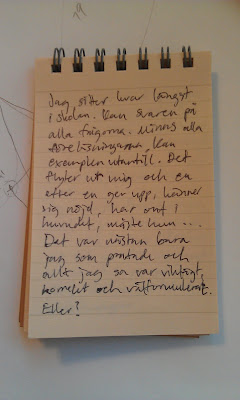 Jag sitter kvar längst
i skolan. Kan svaren på
alla frågorna. Minns alla
föreläsningarna, kan
exemplen utantill. Det
flyter ut mig och en
efter en ger upp, känner
sig nöjd, har ont i
huvudet, måste hem...
Det var nästan bara
jag som pratade och
allt jag sa var viktigt,
korrekt och välformulerat.
Eller?